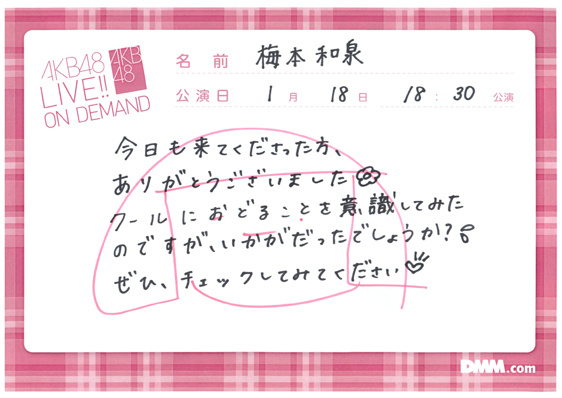 AKB48
LIVE!!
ON DEMAND
AKB
48
名前 梅本和泉
公演日 1月 18日 18:30 公演
今日も来てくださった方、
ありがとうございました
クールにおどることを意識してみた
のですが、いかがだったでしょうか?
ぜひ、チェックしてみてください
DMM.com